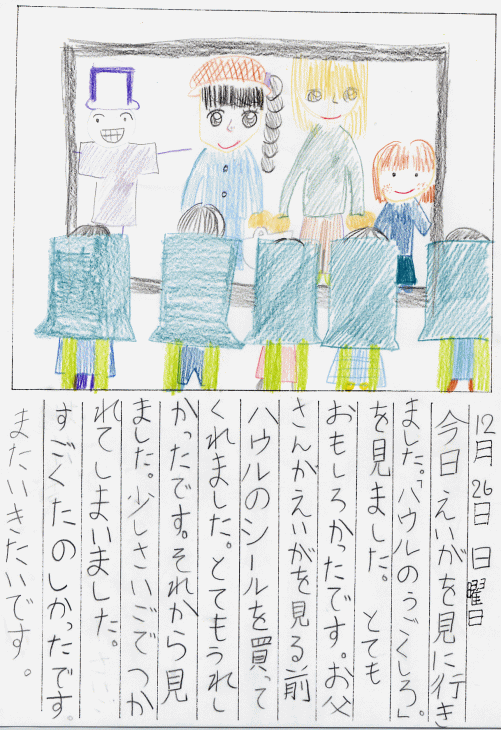 12月26日日曜日
今日えいがを見に行き
ました。「ハウルのうごくしろ」
を見ました。とても
おもしろかったです。お父
さんがえいがを見る前
ハウルのシールを買って
くれました。とてもうれし
かったです。それから見
ました。少しさいごでつか
れてしまいました。
すごくたのしかったです。
またいきたいです。